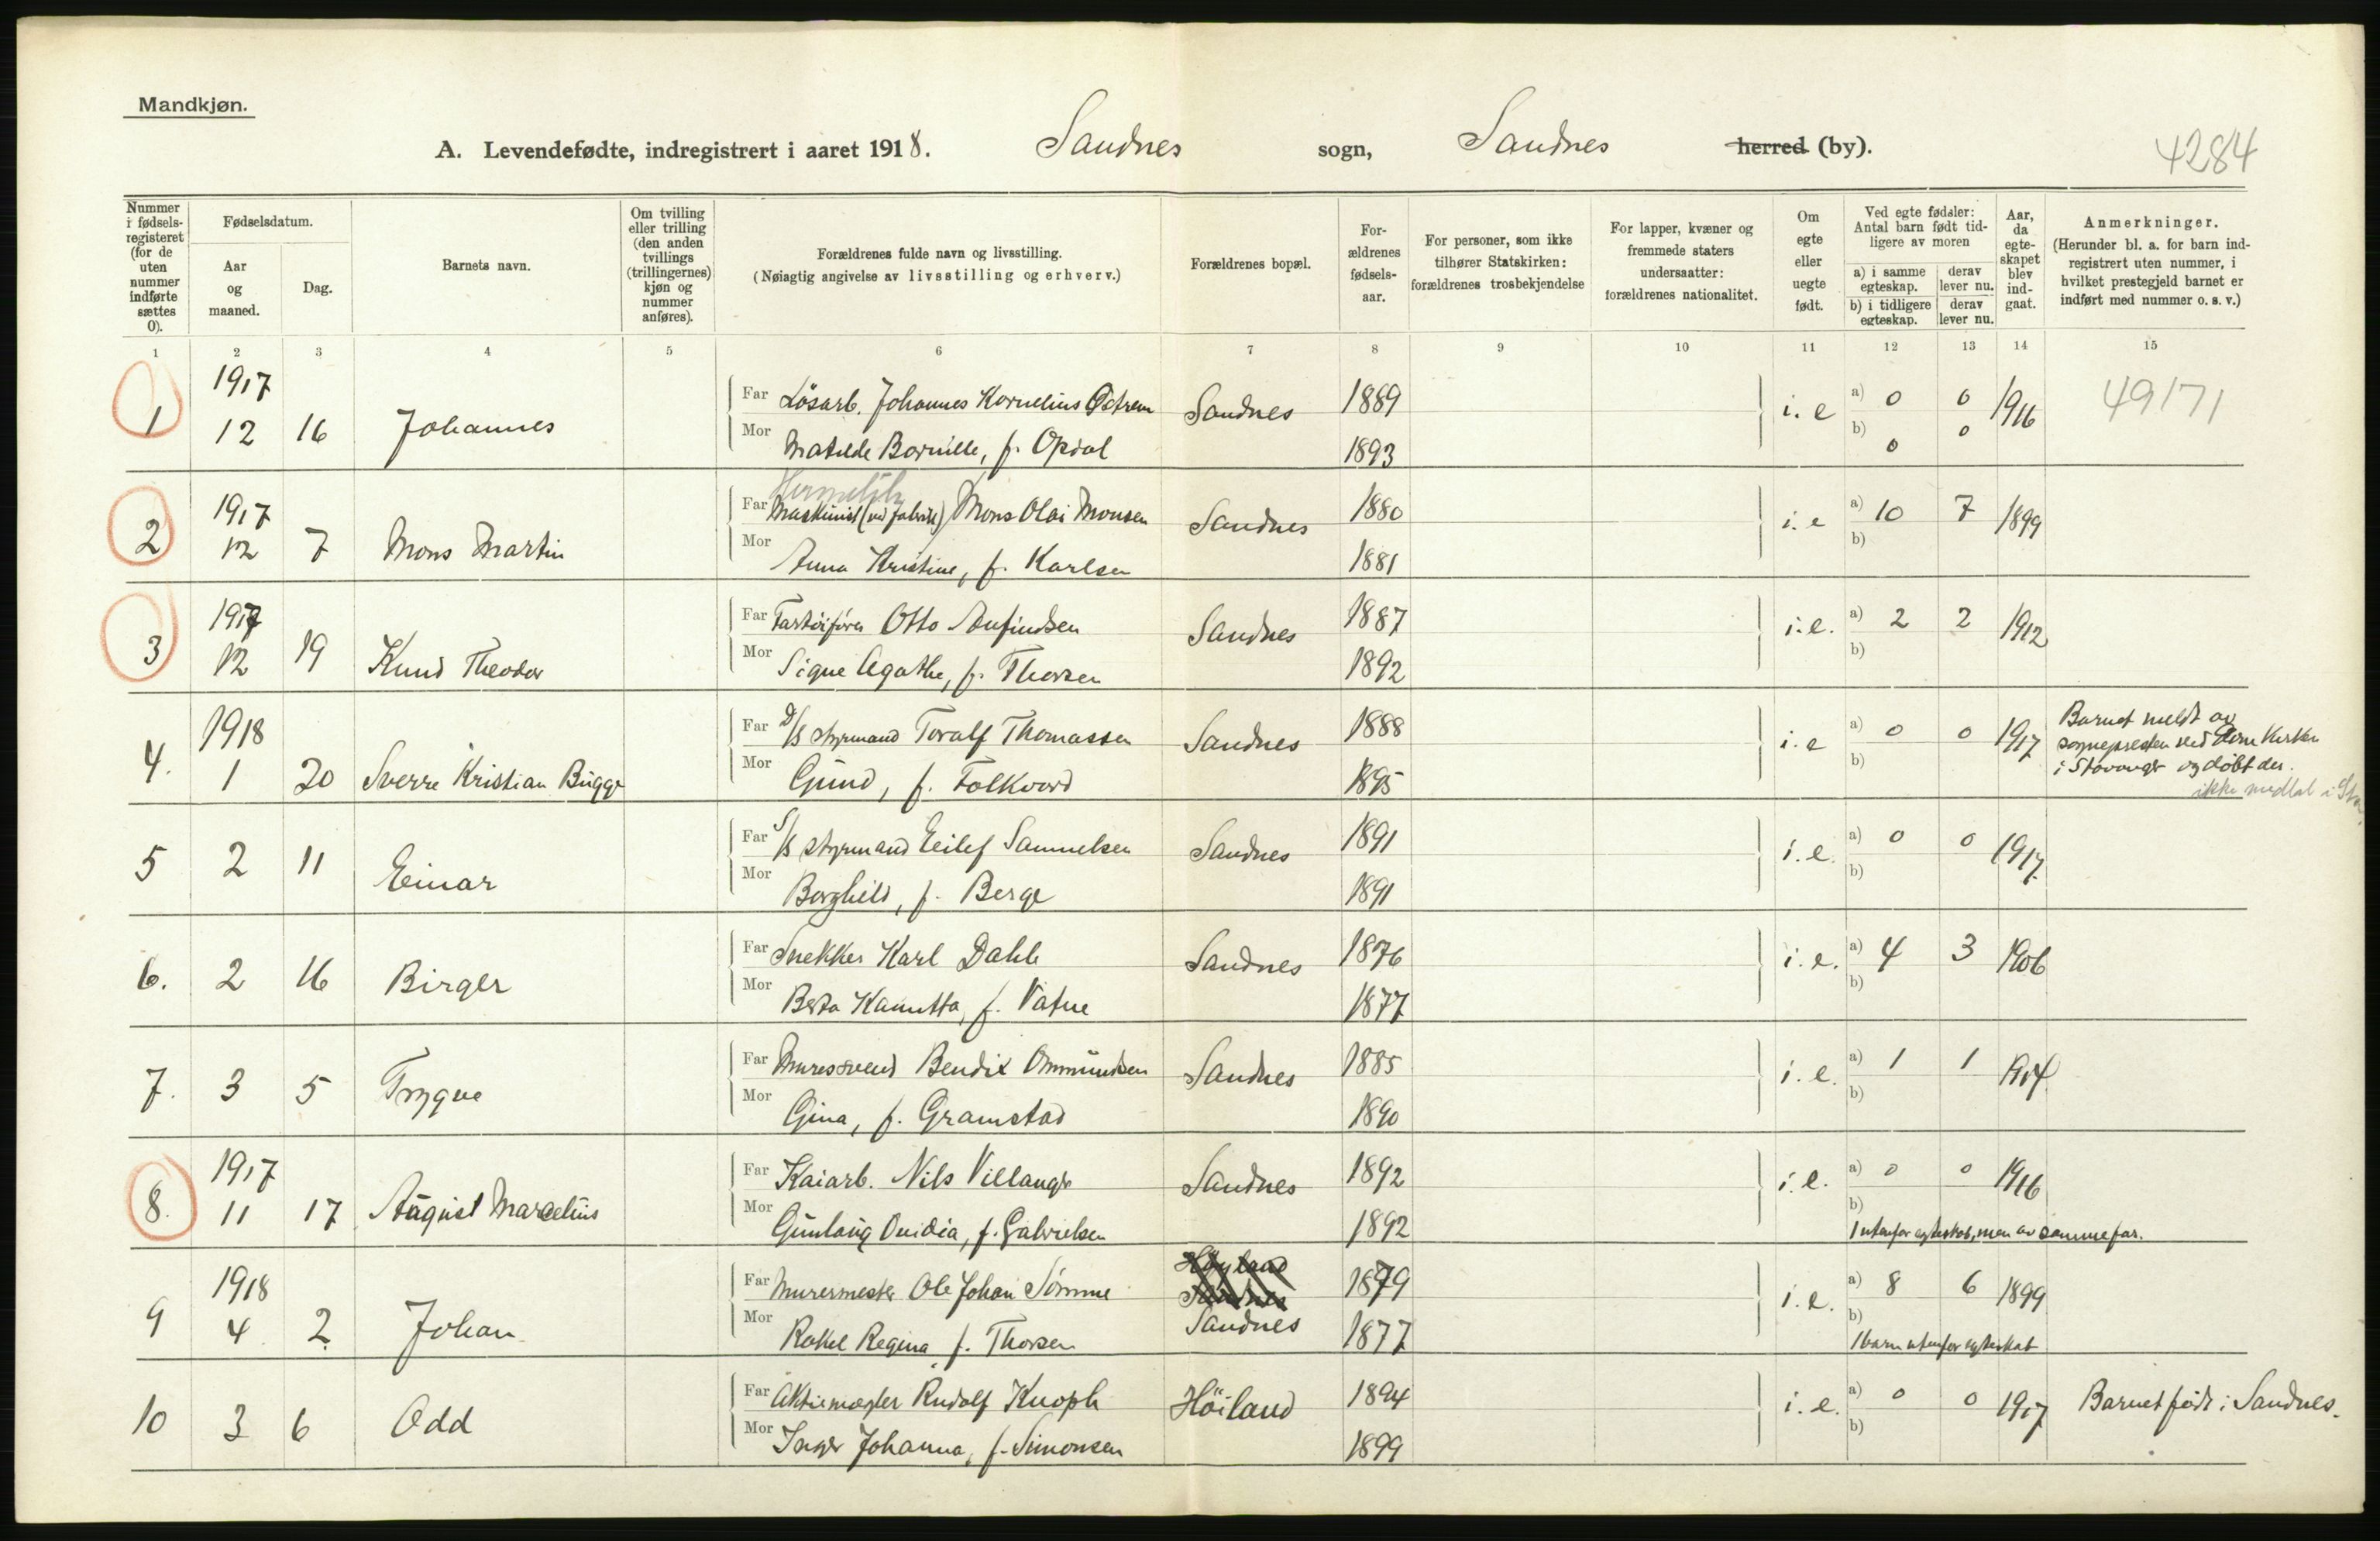 Mandkjøn.
A. Levendefødte, indregistrert i aaret 1918. Sandnes sogn, Sandnes herred (by).
4284
Nummer i fødsels-registeret (for de uten nummer indførte sættes 0).
Fødselsdatum.
Aar og maaned.
Dag.
Barnets navn.
Om tvilling eller trilling (den anden tvillings (trillingernes) kjøn og nummer anføres).
Forældrenes fulde navn og livsstilling.
(Nøiagtig angivelse av livsstilling og erhverv.)
Forældrenes bopæl.
For-ældrenes fødsels-aar.
For personer, som ikke tilhører Statskirken: forældrenes trosbekjendelse
For lapper, kvæner og fremmede staters undersaatter: forældrenes nationalitet.
Om egte eller uegte født.
Ved egte fødsler: Antal barn født tid-ligere av moren
a) i samme egteskap.
derav lever nu.
b) i tidligere egteskap.
derav lever nu.
Aar, da egte-skapet blev ind-gaat.
Anmerkninger.
(Herunder bl. a. for barn ind-registrert uten nummer, i hvilket prestegjeld barnet er indført med nummer o. s. v.)
1 2 3 4 5 6 7 8 9 10 11 12 13 14 15
1917
1 12 16 Johannes
Far Løsarb. Johannes Kornelius Østrem Sandnes 1889 i. e a) 0 0 1916 49171
Mor Matilde Bornille, f. Opdal 1893 b) 0 0
1917
2 12 7 Mons Martin
Far Maskinist (ved fabrik) Mons Olai Monsen Sandnes 1880 i. e a) 10 7 1899
Mor Anna Kristine, f. Karlsen 1881 b)
1917
3 12 19 Knud Theodor
Far Fartøifører Otto Anfindsen Sandnes 1887 i. e. a) 2 2 1912
Mor Signe Agathe, f. Thorsen 1892 b)
1918
4. 1 20 Sverre Kristian Bugge
Far D/S styrmand Toralf Thomassen Sandnes 1888 i. e a) 0 0 1917
Mor Gund, f. Folkvord 1895 b)
Barnet meldt av
sognepresten ved Kirke
i Stavanger og døbt der.
ikke medtat i
5 2 11 Einar
Far S/S styrmand Eilef Samuelsen Sandnes 1891 i. e. a) 0 0 1917
Mor Borghild, f. Berge 1891 b)
6. 2 16 Birger
Far Snekker Karl Dahle Sandnes 1876 i. e. a) 4 3 1906
Mor Berta Kanutta, f. Vatne 1877 b)
7. 3 5 Trygve
Far Muresvend Bendix Ommundsen Sandnes 1885 i. e. a) 1 1 1914
Mor Gina, f. Gramstad 1890 b)
1917
8. 11 17 August Marcelius
Far Kaiarb. Nils Villanger Sandnes 1892 i. e. a) 0 0 1916
Mor Gunlaug Ovidia, f. Gabrielsen 1892 b)
1 utenfor egteskab, men av samme far.
1918
9 4 2. Johan
Høyland
Far Murermester Ole Johan Sømme Sandnes 1879 i. e. a) 8 6 1899
Mor Rakel Regina f. Thorsen Sandnes 1877 b)
1 barn utenfor egteskab
10 3 6 Odd
Far Aktiemægler Rudolf Knoph Höiland 1894 i. e. a) 0 0 1917 Barnet født i Sandnes.
Mor Inger Johanna, f. Simonsen 1899 b)